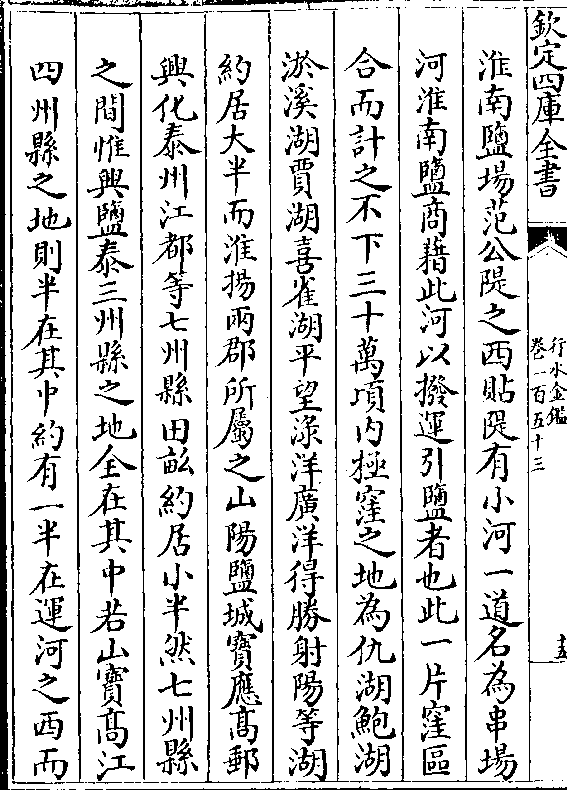 欽定四庫全書
行水金鑑
卷一百五十三
十五
淮南鹽場范公隄之西貼隄有小河一道名為串場
河淮南鹽商藉此河以撥運引鹽者也此一片窪區
合而計之不下三十萬頃内極窪之地為仇湖鮑湖
淤溪湖賈湖喜雀湖平望渌洋廣洋得勝射陽等湖
約居大半而淮揚兩郡所屬之山陽鹽城寶應髙郵
興化泰州江都等七州縣田畝約居小半然七州縣
之間惟興鹽泰三州縣之地全在其中若山寶髙江
四州縣之地則半在其中約有一半在運河之西而